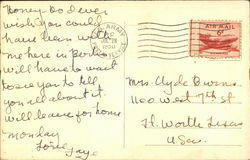 Honey Do I ever
wish you could
have been with
me here in Paris
will have to wait
to see you to tell
you all about it.
Will leave for home
Monday
Love
Faye
ARMY
AIR MAIL
6¢
Mrs. Clyde Owens
1100 West 7th St
Ft. Worth Texas
U.S.A.